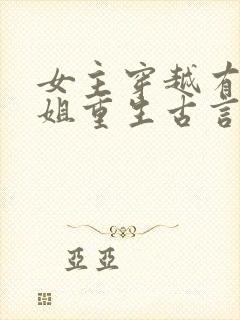 女主穿越有
姐重生古言
亞亞